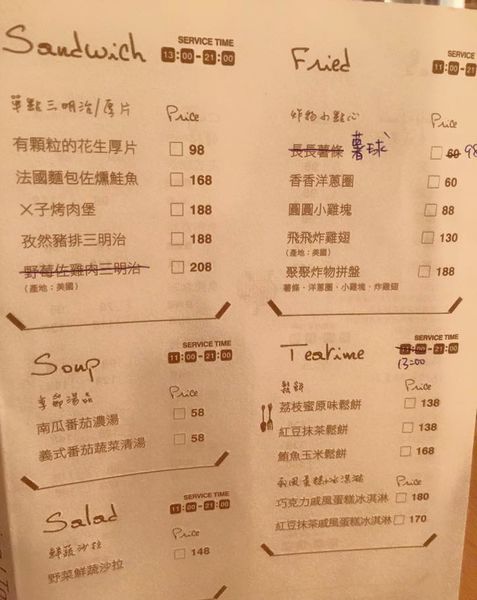 Sandwich
SERVICE TIME
13:00-21:00
單點三明治/厚片 Price
有顆粒的花生厚片 98
法國麵包佐燻鮭魚 168
ㄨ子烤肉堡 188
孜然豬排三明治 188
野莓佐雞肉三明治 208
(產地:美國)
Soup
SERVICE TIME
11:00-21:00
季節湯品 Price
南瓜番茄濃湯 58
義式番茄蔬菜清湯 58
Salad
SERVICE TIME
11:00-21:00
鮮蔬沙拉 Price
野菜鮮蔬沙拉 148
Fried
SERVICE TIME
11:00-21
炸物小點心 Price
長長薯條 薯球 60 98
香香洋蔥圈 60
圓圓小雞塊 88
飛飛炸雞翅 130
(產地:美國)
聚聚炸物拼盤 188
薯條、洋蔥圈、小雞塊、炸雞翅
Teatime
SERVICE TIME
11:00-21:00
13:00
鬆餅 Price
荔枝蜜原味鬆餅 138
紅豆抹茶鬆餅 138
鮪魚玉米鬆餅 168
戚風蛋糕+冰淇淋 Price
巧克力戚風蛋糕冰淇淋 180
紅豆抹茶戚風蛋糕冰淇淋 170